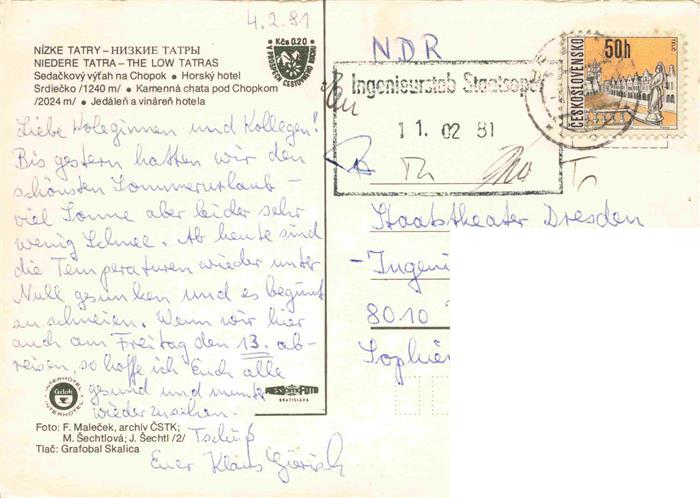 4.2.81
NÍZKE TATRY – НИЗКИЕ ТАТРЫ
NIEDERE TATRA – THE LOW TATRAS
Sedačkový výťah na Chopok • Horský hotel
Srdiečko /1240 m/ • Kamenná chata pod Chopkom
/2024 m/ • Jedáleň a vináreň hotela
Kčs 0,20
Liebe Kolleginnen und Kollegen!
Bis gestern hatten wir den
schönsten Sommerurlaub –
viel Sonne aber leider sehr
wenig Schnee. Ab heute sind
die Temperaturen wieder unter
Null gesunken und es beginnt
zu schneien. Wenn wir hier
auch am Freitag den 13. ab-
reisen, so hoffe ich Euch alle
gesund und munter
wiederzusehen.
Tschüß
Euer Klaus
INTERHOTEL
Čedok
INTERHOTEL
PRESSFOTO
BRATISLAVA
Foto: F. Maleček, archív ČSTK;
M. Šechtlová; J. Šechtl /2/
Tlač: Grafobal Skalica
NDR
Ingenieurstab Staatsoper
11. 02 81
ČESKOSLOVENSKO
50h
TELČ
Staatstheater Dresden
– Ingeni
8010
Sophien